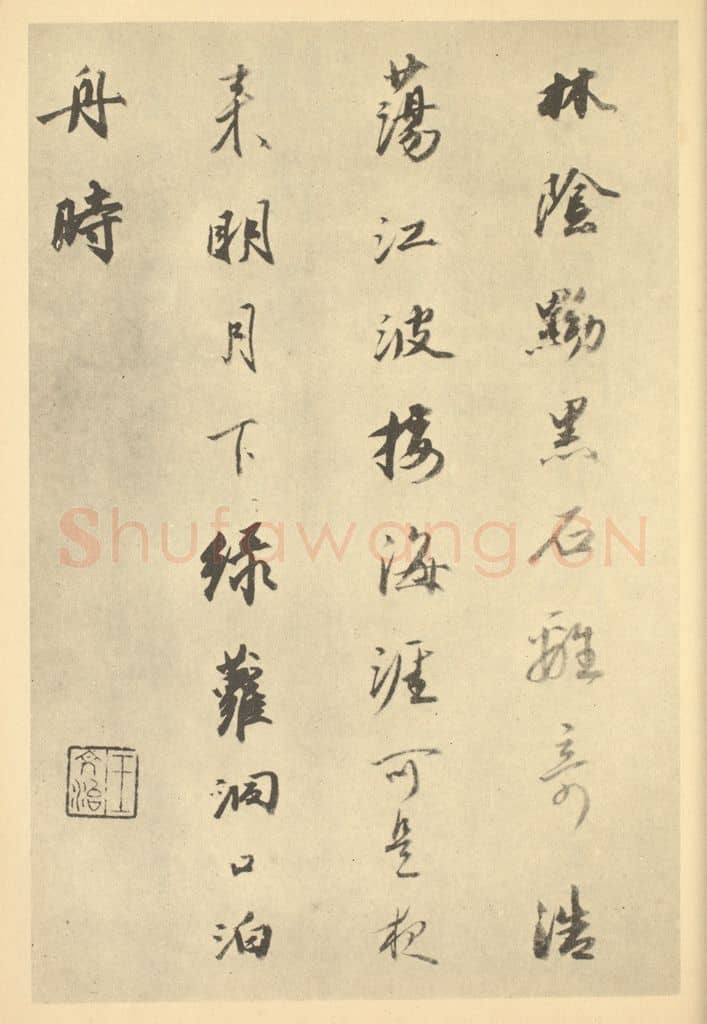 林陰黝黑石離奇浩
蕩江波接海涯可是夜
来明月下綠蘿洞口泊
舟時
王文治
Shufawang.CN